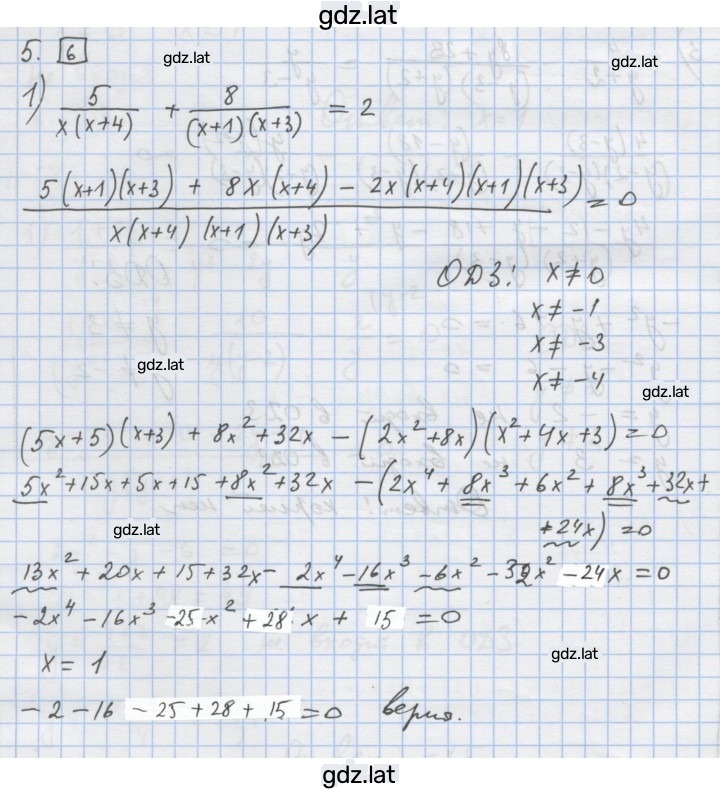 gdz.lat
5. 6
gdz.lat gdz.lat
1) 5/(x(x+4)) + 8/((x+1)(x+3)) = 2
(5(x+1)(x+3) + 8x(x+4) - 2x(x+4)(x+1)(x+3))/(x(x+4)(x+1)(x+3)) = 0
ОДЗ: x ≠ 0
x ≠ -1
x ≠ -3
gdz.lat
x ≠ -4
gdz.lat
(5x+5)(x+3) + 8x² + 32x - (2x² + 8x)(x² + 4x + 3) = 0
5x² + 15x + 5x + 15 + 8x² + 32x - (2x⁴ + 8x³ + 6x² + 8x³ + 32x +
gdz.lat
+ 24x) = 0
13x² + 20x + 15 + 32x - 2x⁴ - 16x³ - 6x² - 32x² - 24x = 0
- 2x⁴ - 16x³ - 25x² + 28x + 15 = 0
x = 1
gdz.lat
- 2 - 16 - 25 + 28 + 15 = 0 верно.
gdz.lat